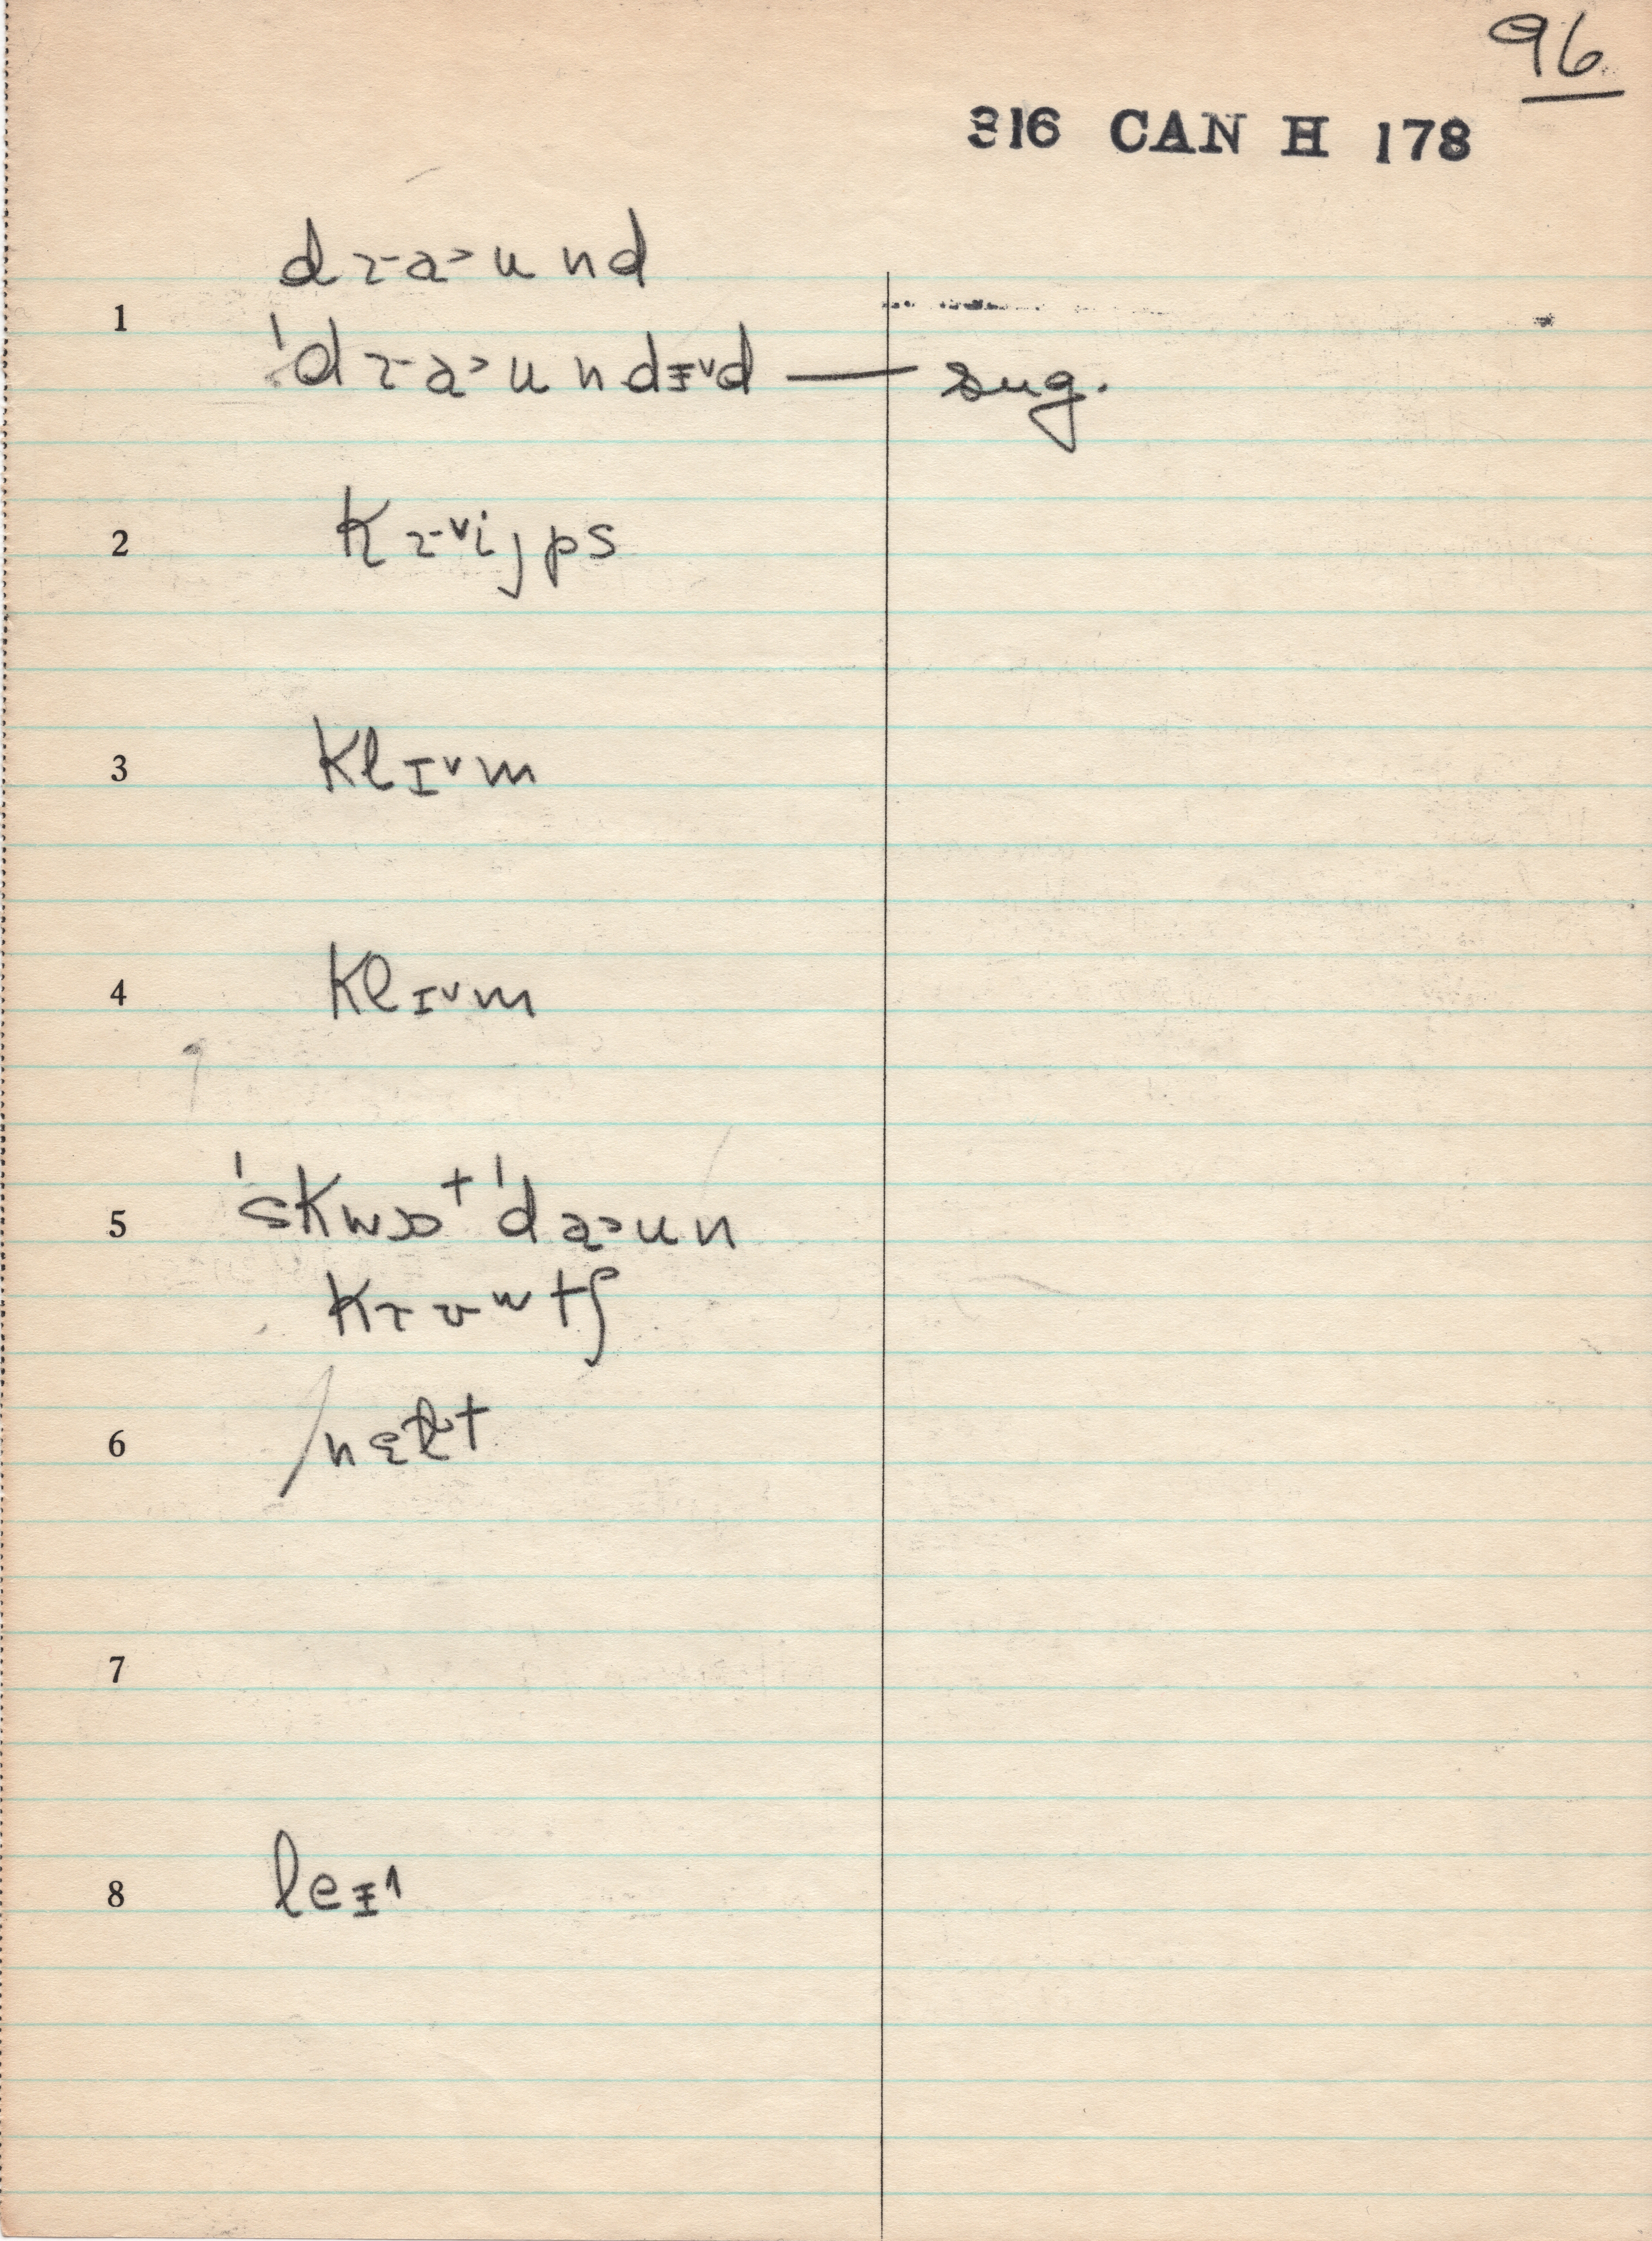 96
316 CAN H 178
d ɹ a > u n d
1
ˈd ɹ a > u n d ɪ ˅ d — sug.
2 k ɹ ˅ i j p s
3 k l ɪ ˅ m
4 k l ɪ ˅ m
5 ˈs k w ɒ t ˈd a > u n
k ɹ ʊ ʷ t ʃ
6 n ɛ ɫ t
7
8 l e ɪ ^